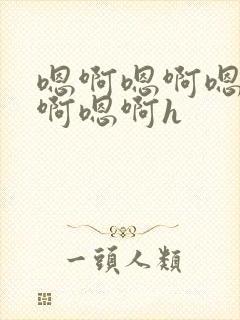 嗯啊嗯啊嗯
啊嗯啊h
一頭人類